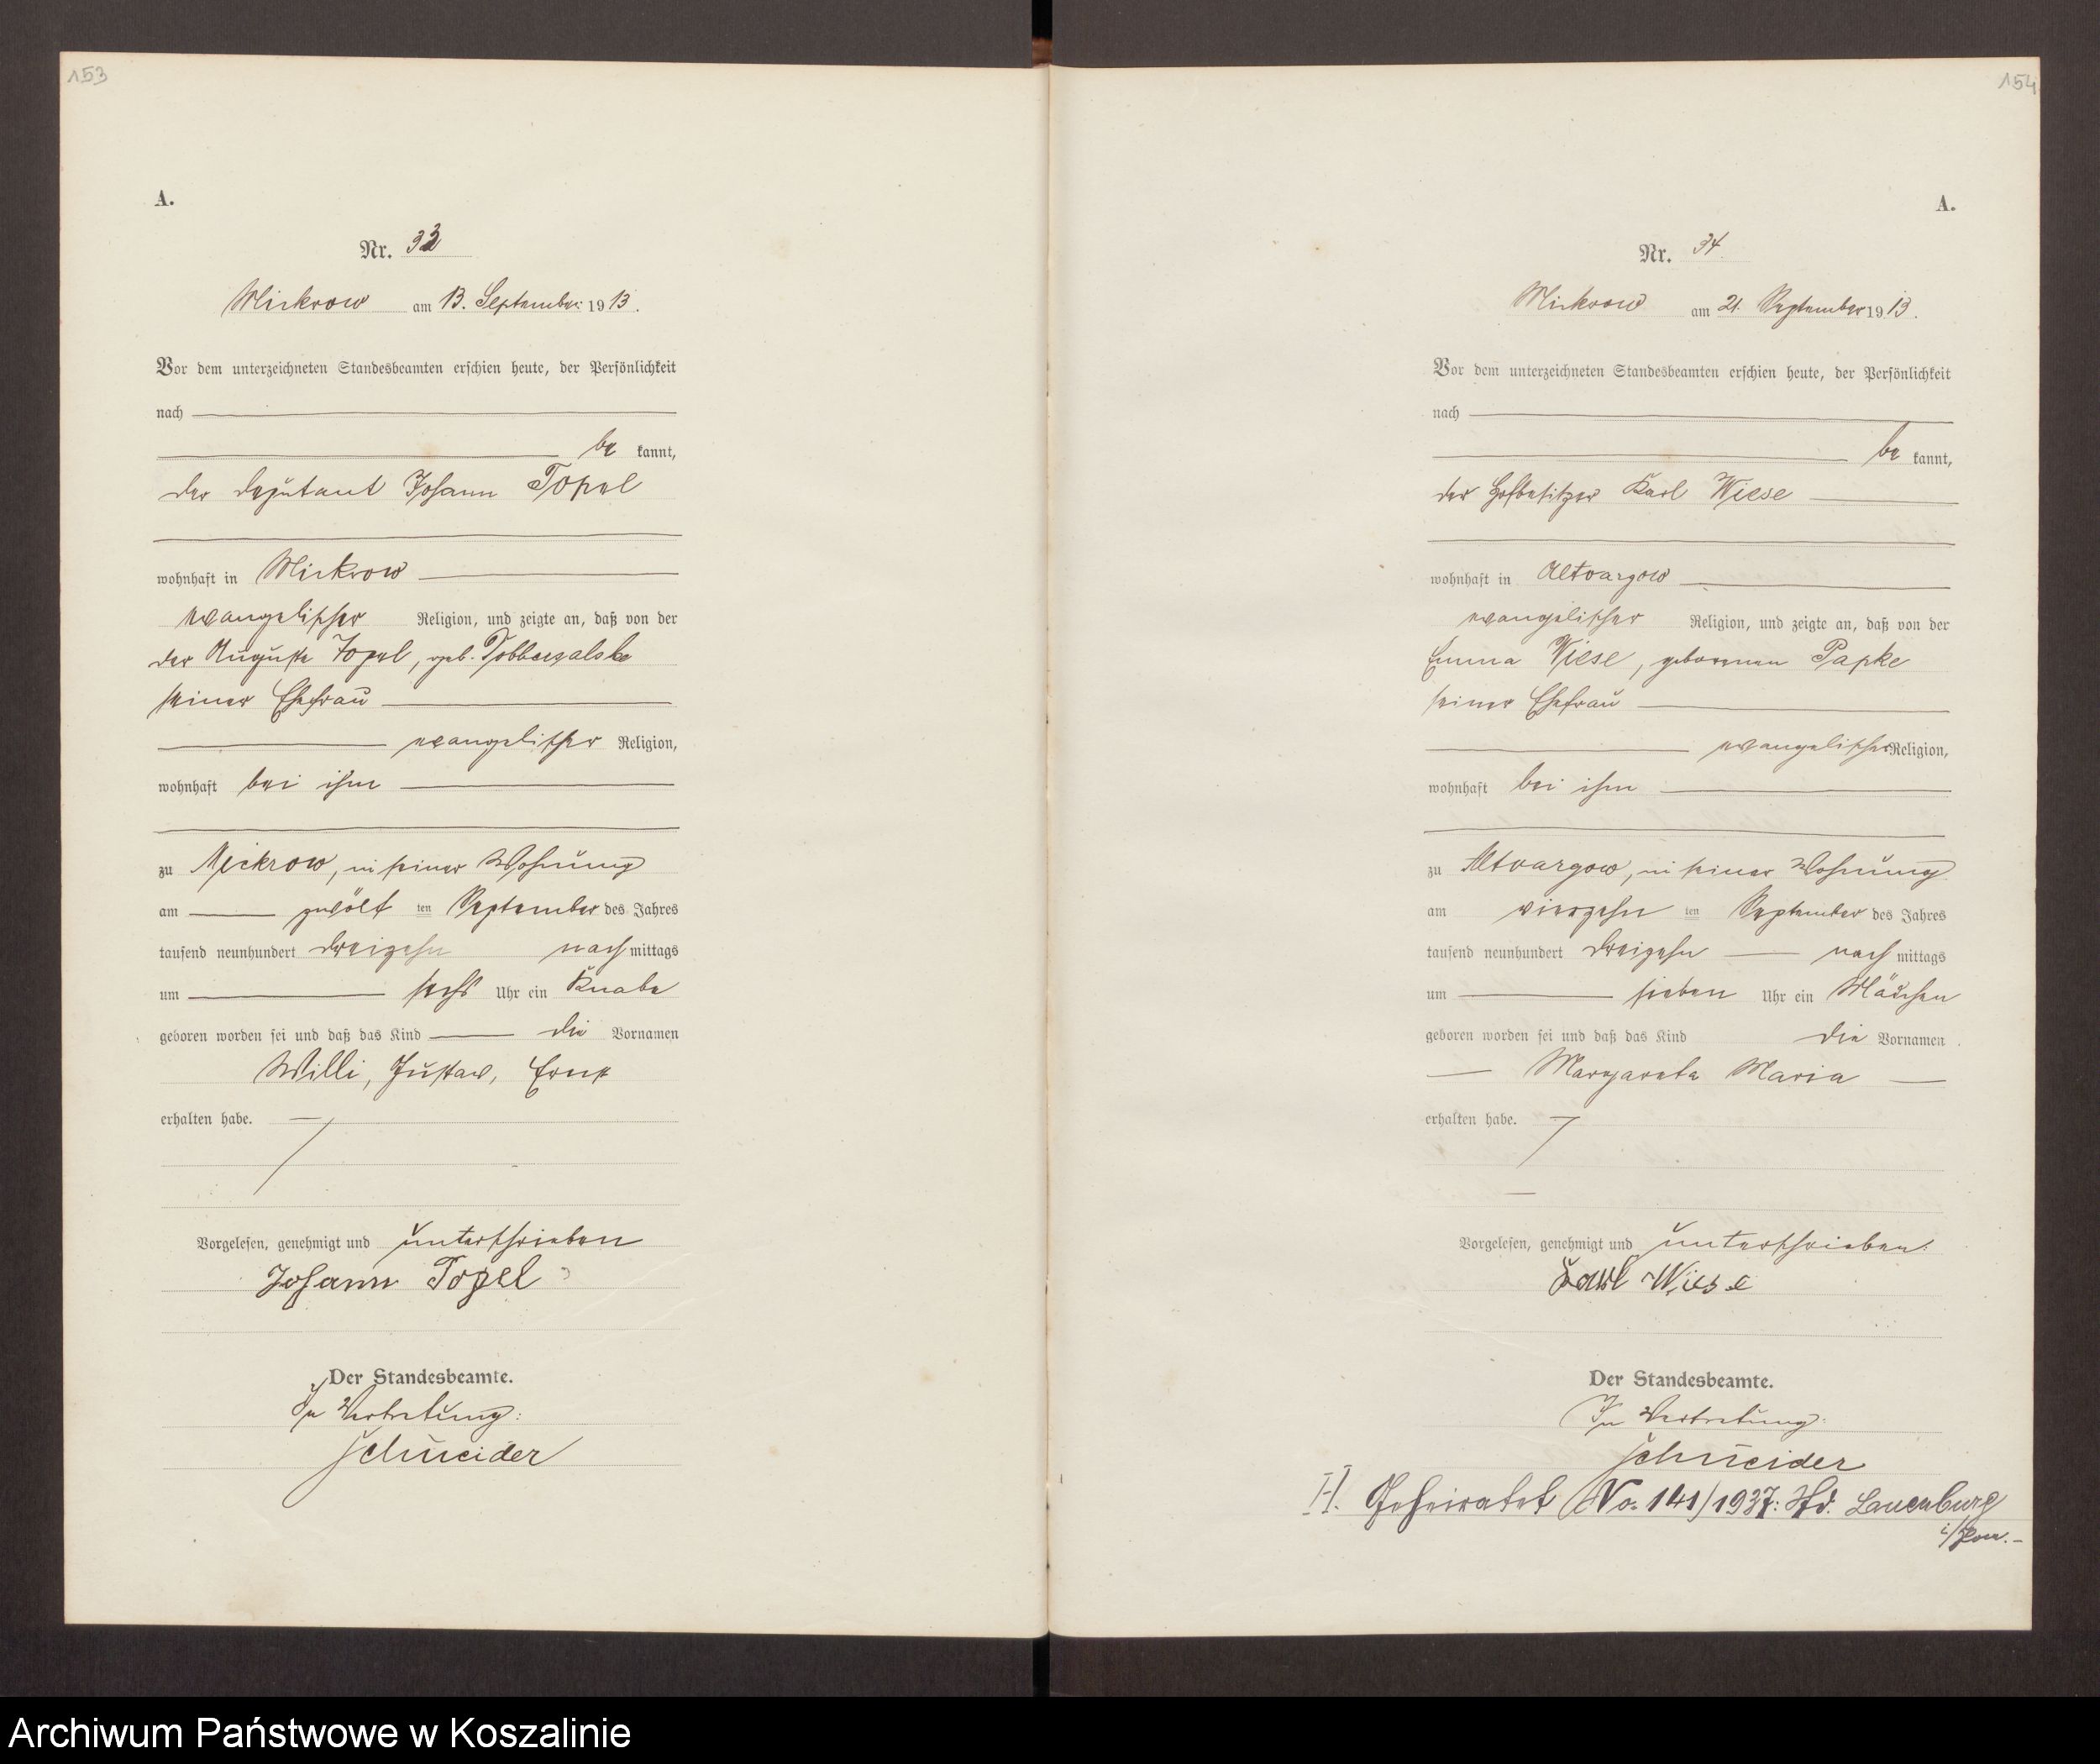 153
A.
Nr. 33
Mickrow am 13. September 1913.
Vor dem unterzeichneten Standesbeamten erschien heute, der Persönlichkeit
nach
be kannt,
der Deputant Johann Topel
wohnhaft in Mickrow
evangelischer Religion, und zeigte an, daß von der
der Auguste Topel, geb.
seiner Ehefrau
evangelischer Religion,
wohnhaft bei ihm
zu Mickrow, in seiner Wohnung
am zwölf ten September des Jahres
tausend neunhundert dreizehn nach mittags
um sechs Uhr ein Knabe
geboren worden sei und daß das Kind die Vornamen
Willi, Gustav, Ernst
erhalten habe.
Vorgelesen, genehmigt und unterschrieben
Johann Topel
Der Standesbeamte.
In Vertretung:
Schneider
154
A.
Nr. 34
Mickrow am 21. September 1913.
Vor dem unterzeichneten Standesbeamten erschien heute, der Persönlichkeit
nach
be kannt,
der Hofbesitzer Karl Wiese
wohnhaft in Altvargow
evangelischer Religion, und zeigte an, daß von der
Emma Wiese, geborenen Papke
seiner Ehefrau
evangelischer Religion,
wohnhaft bei ihm
zu Altvargow, in seiner Wohnung
am vierzehn ten September des Jahres
tausend neunhundert dreizehn nach mittags
um sieben Uhr ein Mädchen
geboren worden sei und daß das Kind die Vornamen
Margareta Maria
erhalten habe.
Vorgelesen, genehmigt und unterschrieben.
Karl Wiese
Der Standesbeamte.
In Vertretung:
Schneider
H. Geheiratet No. 141/1937: Std. Lauenburg
i/Pom.-
Archiwum Państwowe w Koszalinie